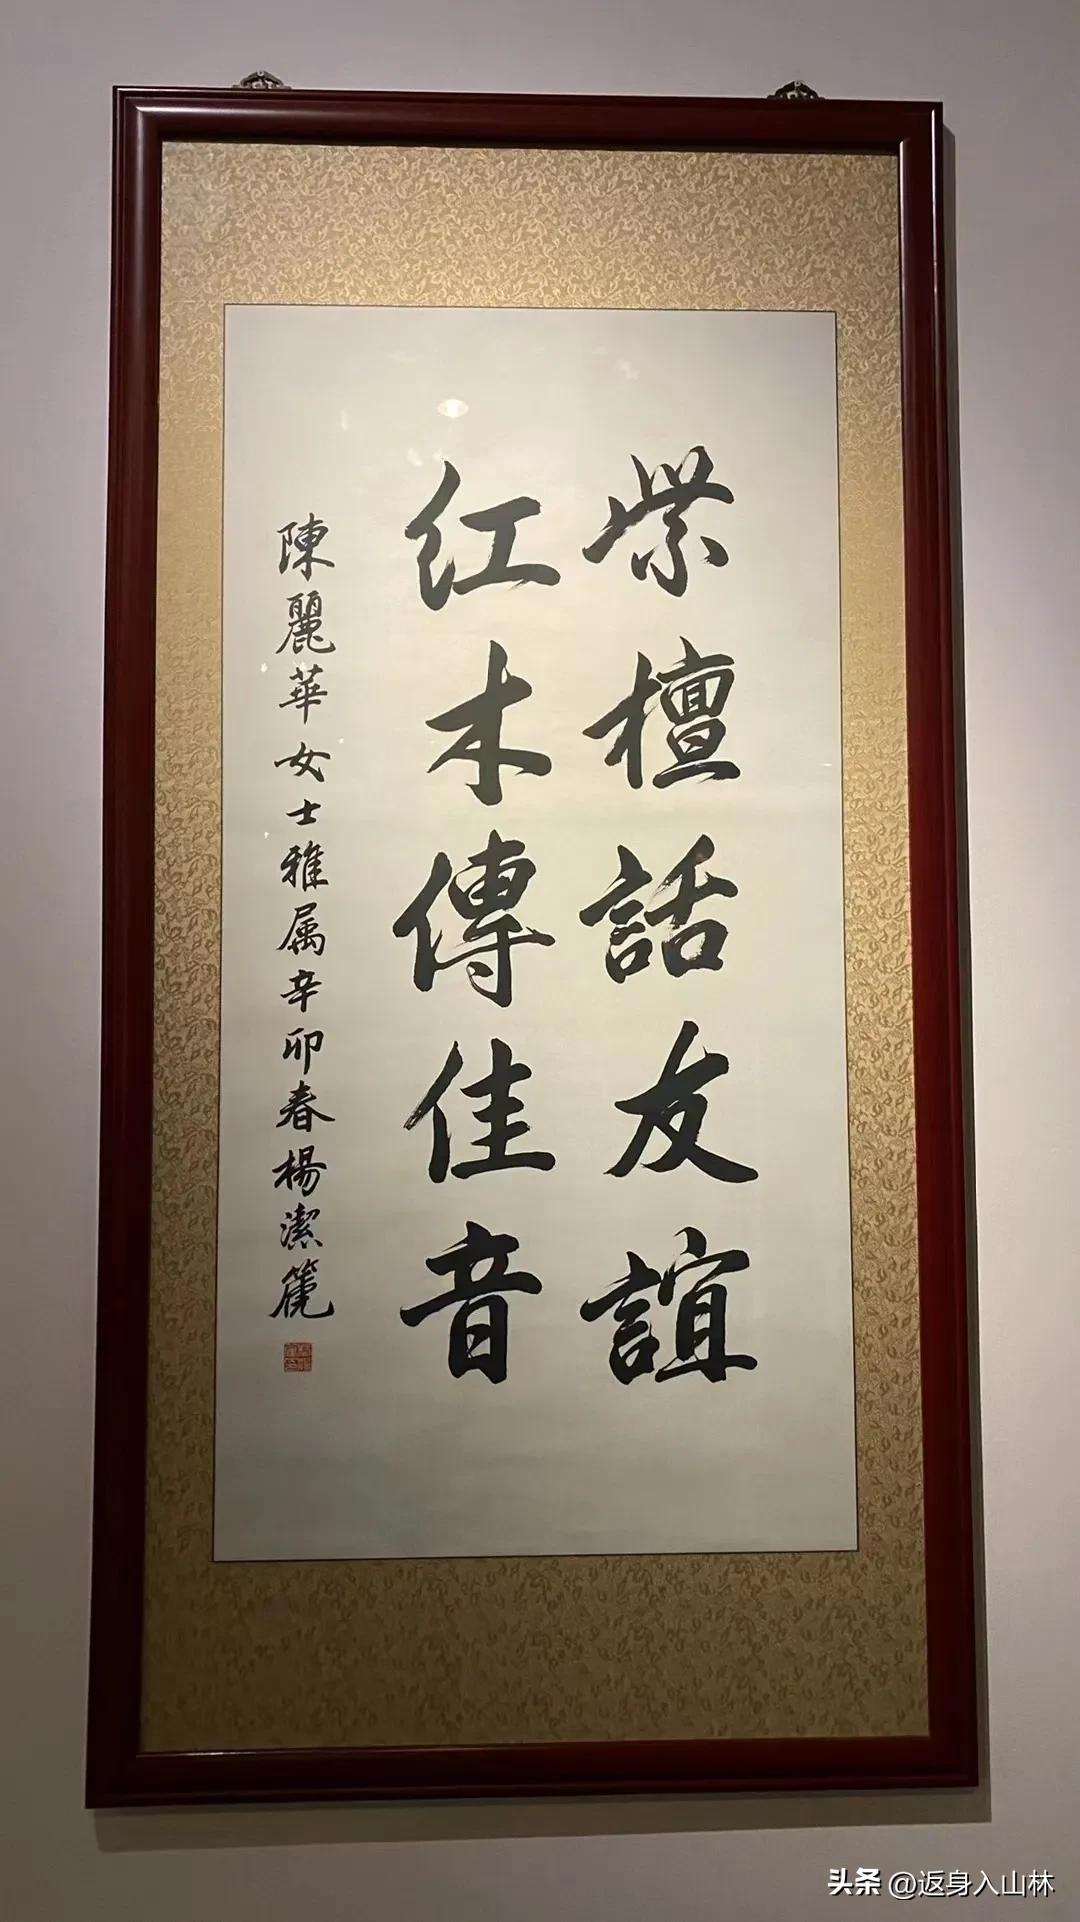 紫檀話友誼
红木傳佳音
陳麗華女士雅属辛卯春楊潔篪
头条 @返身入山林